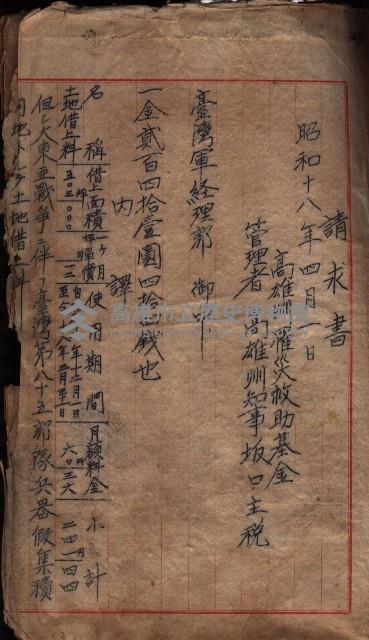 請求書
昭和十八年四月一日
高雄州罹災救助基金
管理者 高雄州知事坂口主税
臺灣軍経理部 御中
一金貳百四拾壹圓四拾四銭也
内譯
名稱 借上面積 使用期間 月額料金 小計
土地借上料 五〇三〇〇〇 六〇三六 二四一四四
但シ大東亜戦争ニ伴フ臺灣第八十五部隊兵器假集積
用地トシテ土地借上料
高雄市立歷史博物館